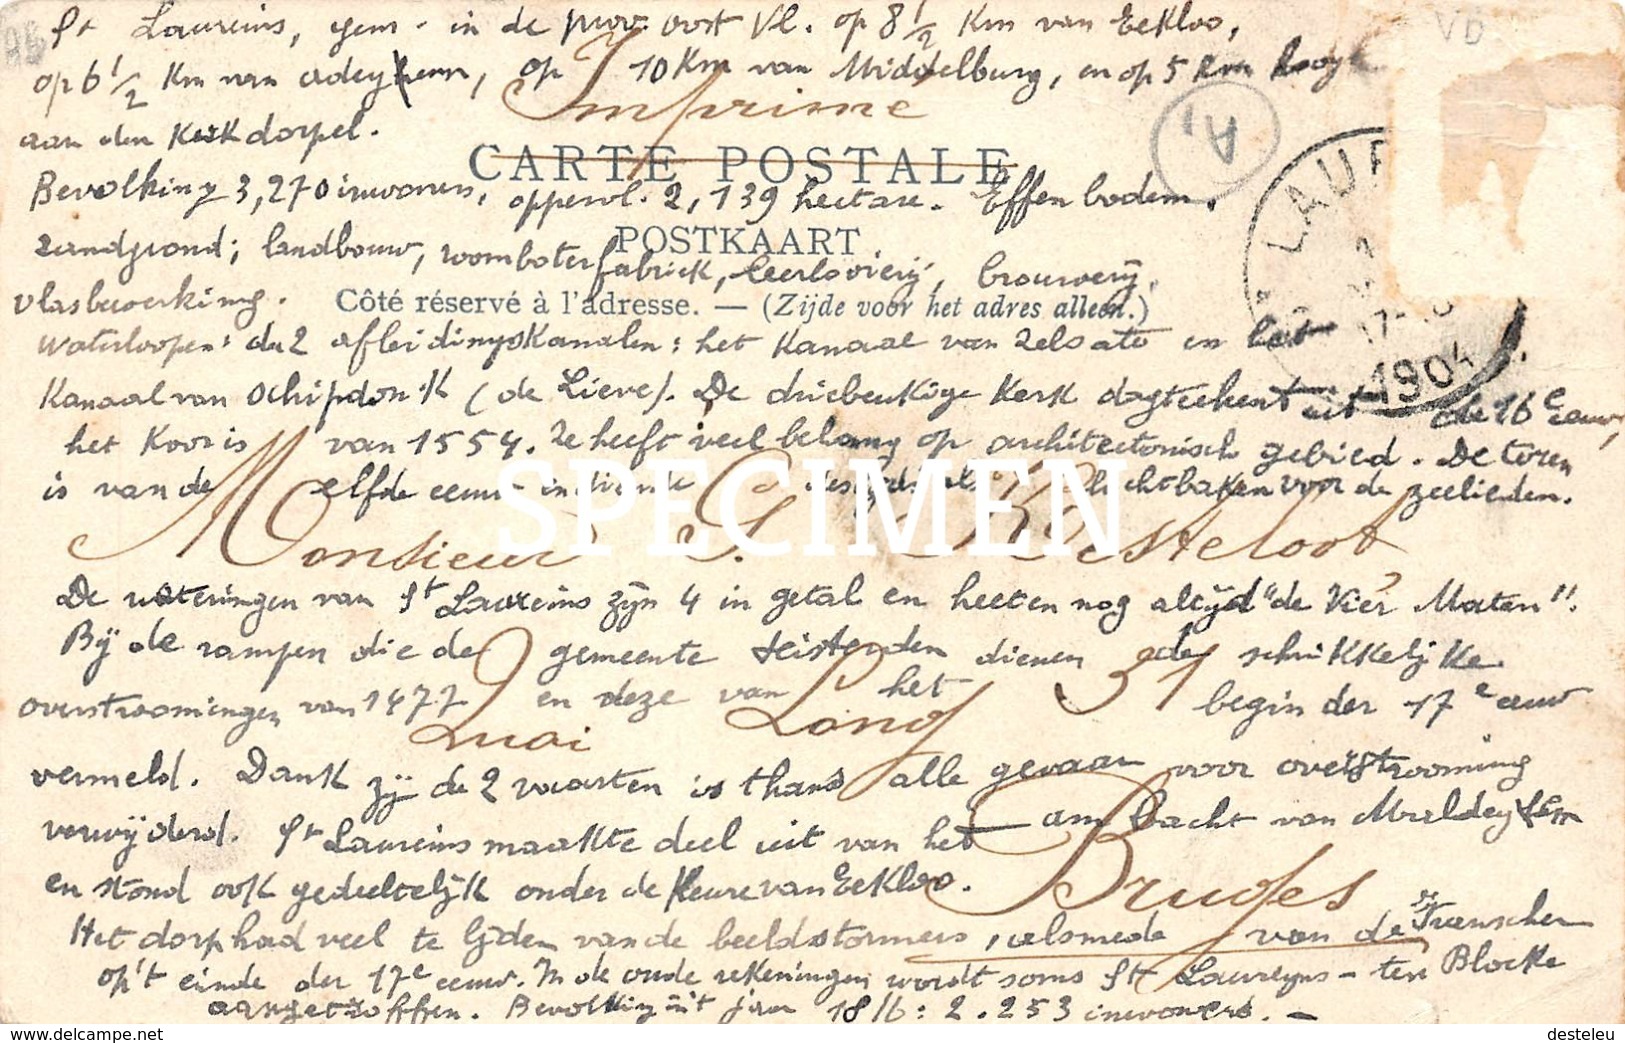 St Laureins, gem. in de prov. oost Vl. op 8 1/2 Km van Eekloo,
op 6 1/2 Km van adeghem, op 10 Km van Middelburg, en op 5 Km
Imprime
aan den Kerkdorpel.
CARTE POSTALE
Bevolking 3,270 inwoners, oppervl. 2,139 hectare. Effen bodem,
POSTKAART
zandgrond; landbouw, roomboterfabriek, leerlooierij, brouwerij,
vlasbewerking.
Côté réservé à l'adresse. — (Zijde voor het adres alleen.)
LAUR
17-18
1904
Waterloopen: de 2 afleidingskanalen: het Kanaal van Zelzate en het
Kanaal van Schipdonk (de Lieve). De driebeukige Kerk dagteekent uit de 16e eeuw,
het Koor is van 1554. Ze heeft veel belang op architectonisch gebied. De toren
is van de elfde eeuw en diende destijds als lichtbaken voor de zeelieden.
SPECIMEN
Monsieur G. Kesteloot
De wateringen van St Laureins zijn 4 in getal en heeten nog altijd "de Vier Maten".
Bij de rampen die de gemeente teisterden dienen de schrikkelijke
overstroomingen van 1477 en deze van het begin der 17e eeuw
Quai Long 31
vermeld. Dank zij de 2 vaarten is thans alle gevaar voor overstrooming
verwijderd. St Laureins maakte deel uit van het ambacht van Maldeghem
en stond ook gedeeltelijk onder de Keure van Eekloo.
Bruges
Het dorp had veel te lijden van de beeldstormers, alsmede van de Franschen
op't einde der 17e eeuw. In de oude rekeningen wordt soms St Laureyns-ten Blocke
aangetroffen. Bevolking uit jaar 1816: 2.253 inwoners. —
www.delcampe.net
desteleu